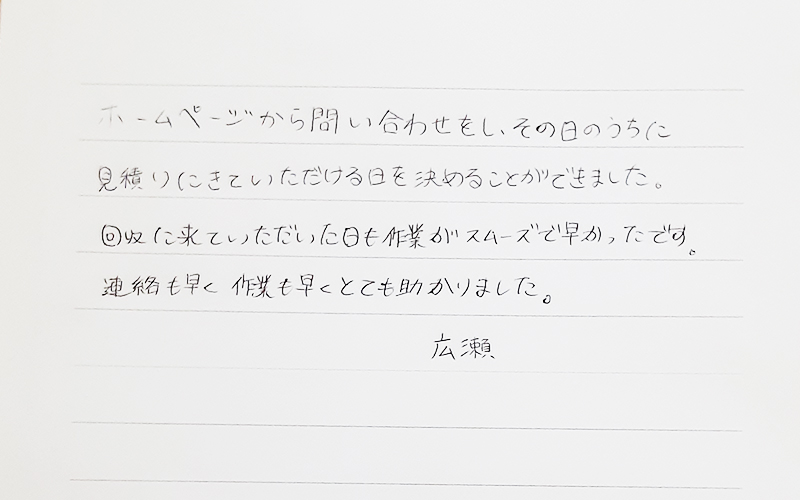 ホームページから問い合わせをし、その日のうちに
見積りにきていただける日を決めることができました。
回収に来ていただいた日も作業がスムーズで早かったです。
連絡も早く 作業も早くとても助かりました。
広瀬